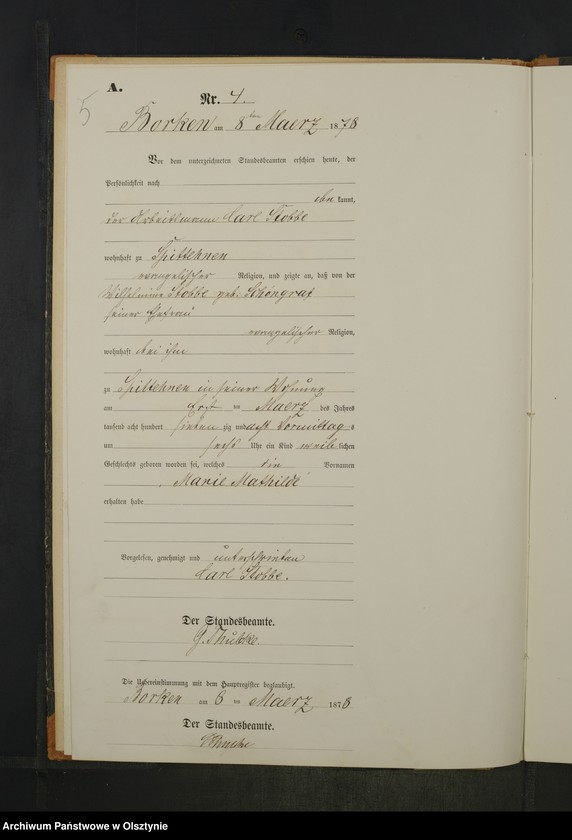 A.
5
Nr. 4.
Borken am 8ten Maerz 1878
Vor dem unterzeichneten Standesbeamten erschien heute, der
Persönlichkeit nach
be kannt,
der Arbeitsmann Carl Stobbe
wohnhaft zu Spittehnen
evangelischer Religion, und zeigte an, daß von der
Wilhelmine Stobbe geb: Schöngraf
seiner Ehefrau
evangelischer Religion,
wohnhaft bei ihm
zu Spittehnen in seiner Wohnung
am ten Maerz des Jahres
tausend acht hundert sieben zig und acht Vormittag s
um Uhr ein Kind weib lichen
Geschlechts geboren worden sei, welches die Vornamen
Marie Mathilde
erhalten habe
Vorgelesen, genehmigt und unterschrieben
Carl Stobbe.
Der Standesbeamte.
Die Uebereinstimmung mit dem Hauptregister beglaubigt.
Borken am 8 ten Maerz 1878
Der Standesbeamte.
Archiwum Państwowe w Olsztynie